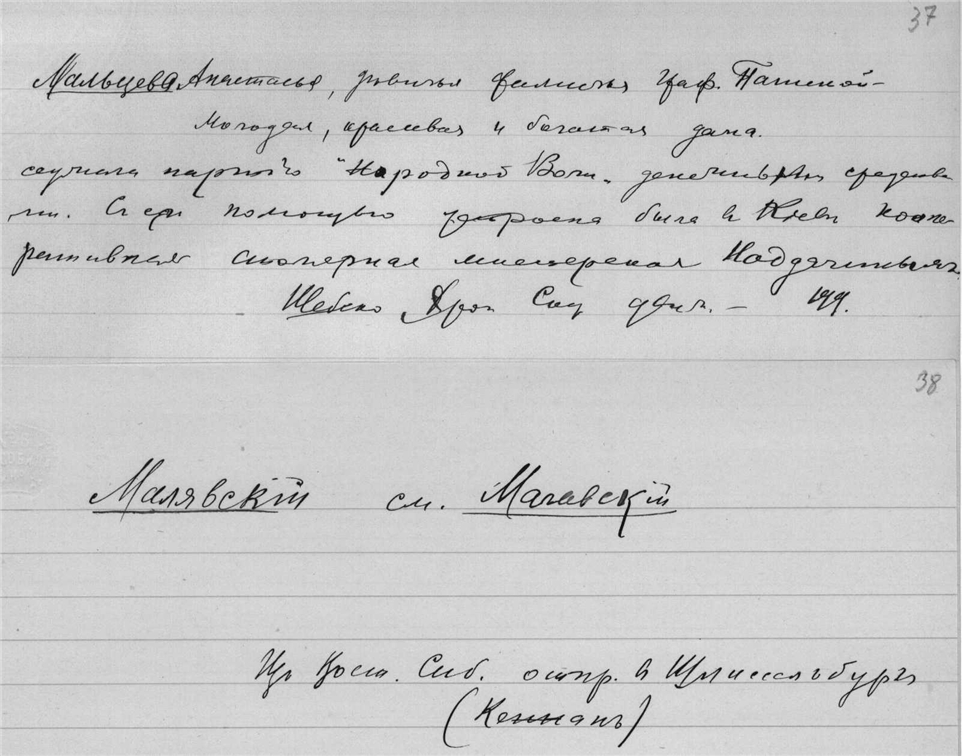 37
Мальцева Анастасья, девичья фамилья граф. Паниной
Молодая, красивая и богатая дама.
партію "Народной Воли" денежными средства
ми. С ея помощью устроена была в Киеве коопе
ративная столярная мастерская
Шебеко Хрон Соц движ. — 199.
38
Малявскій см. Мачевскій
Из Вост. Сиб. отпр. в Шлиссельбургъ
(Кеннанъ)